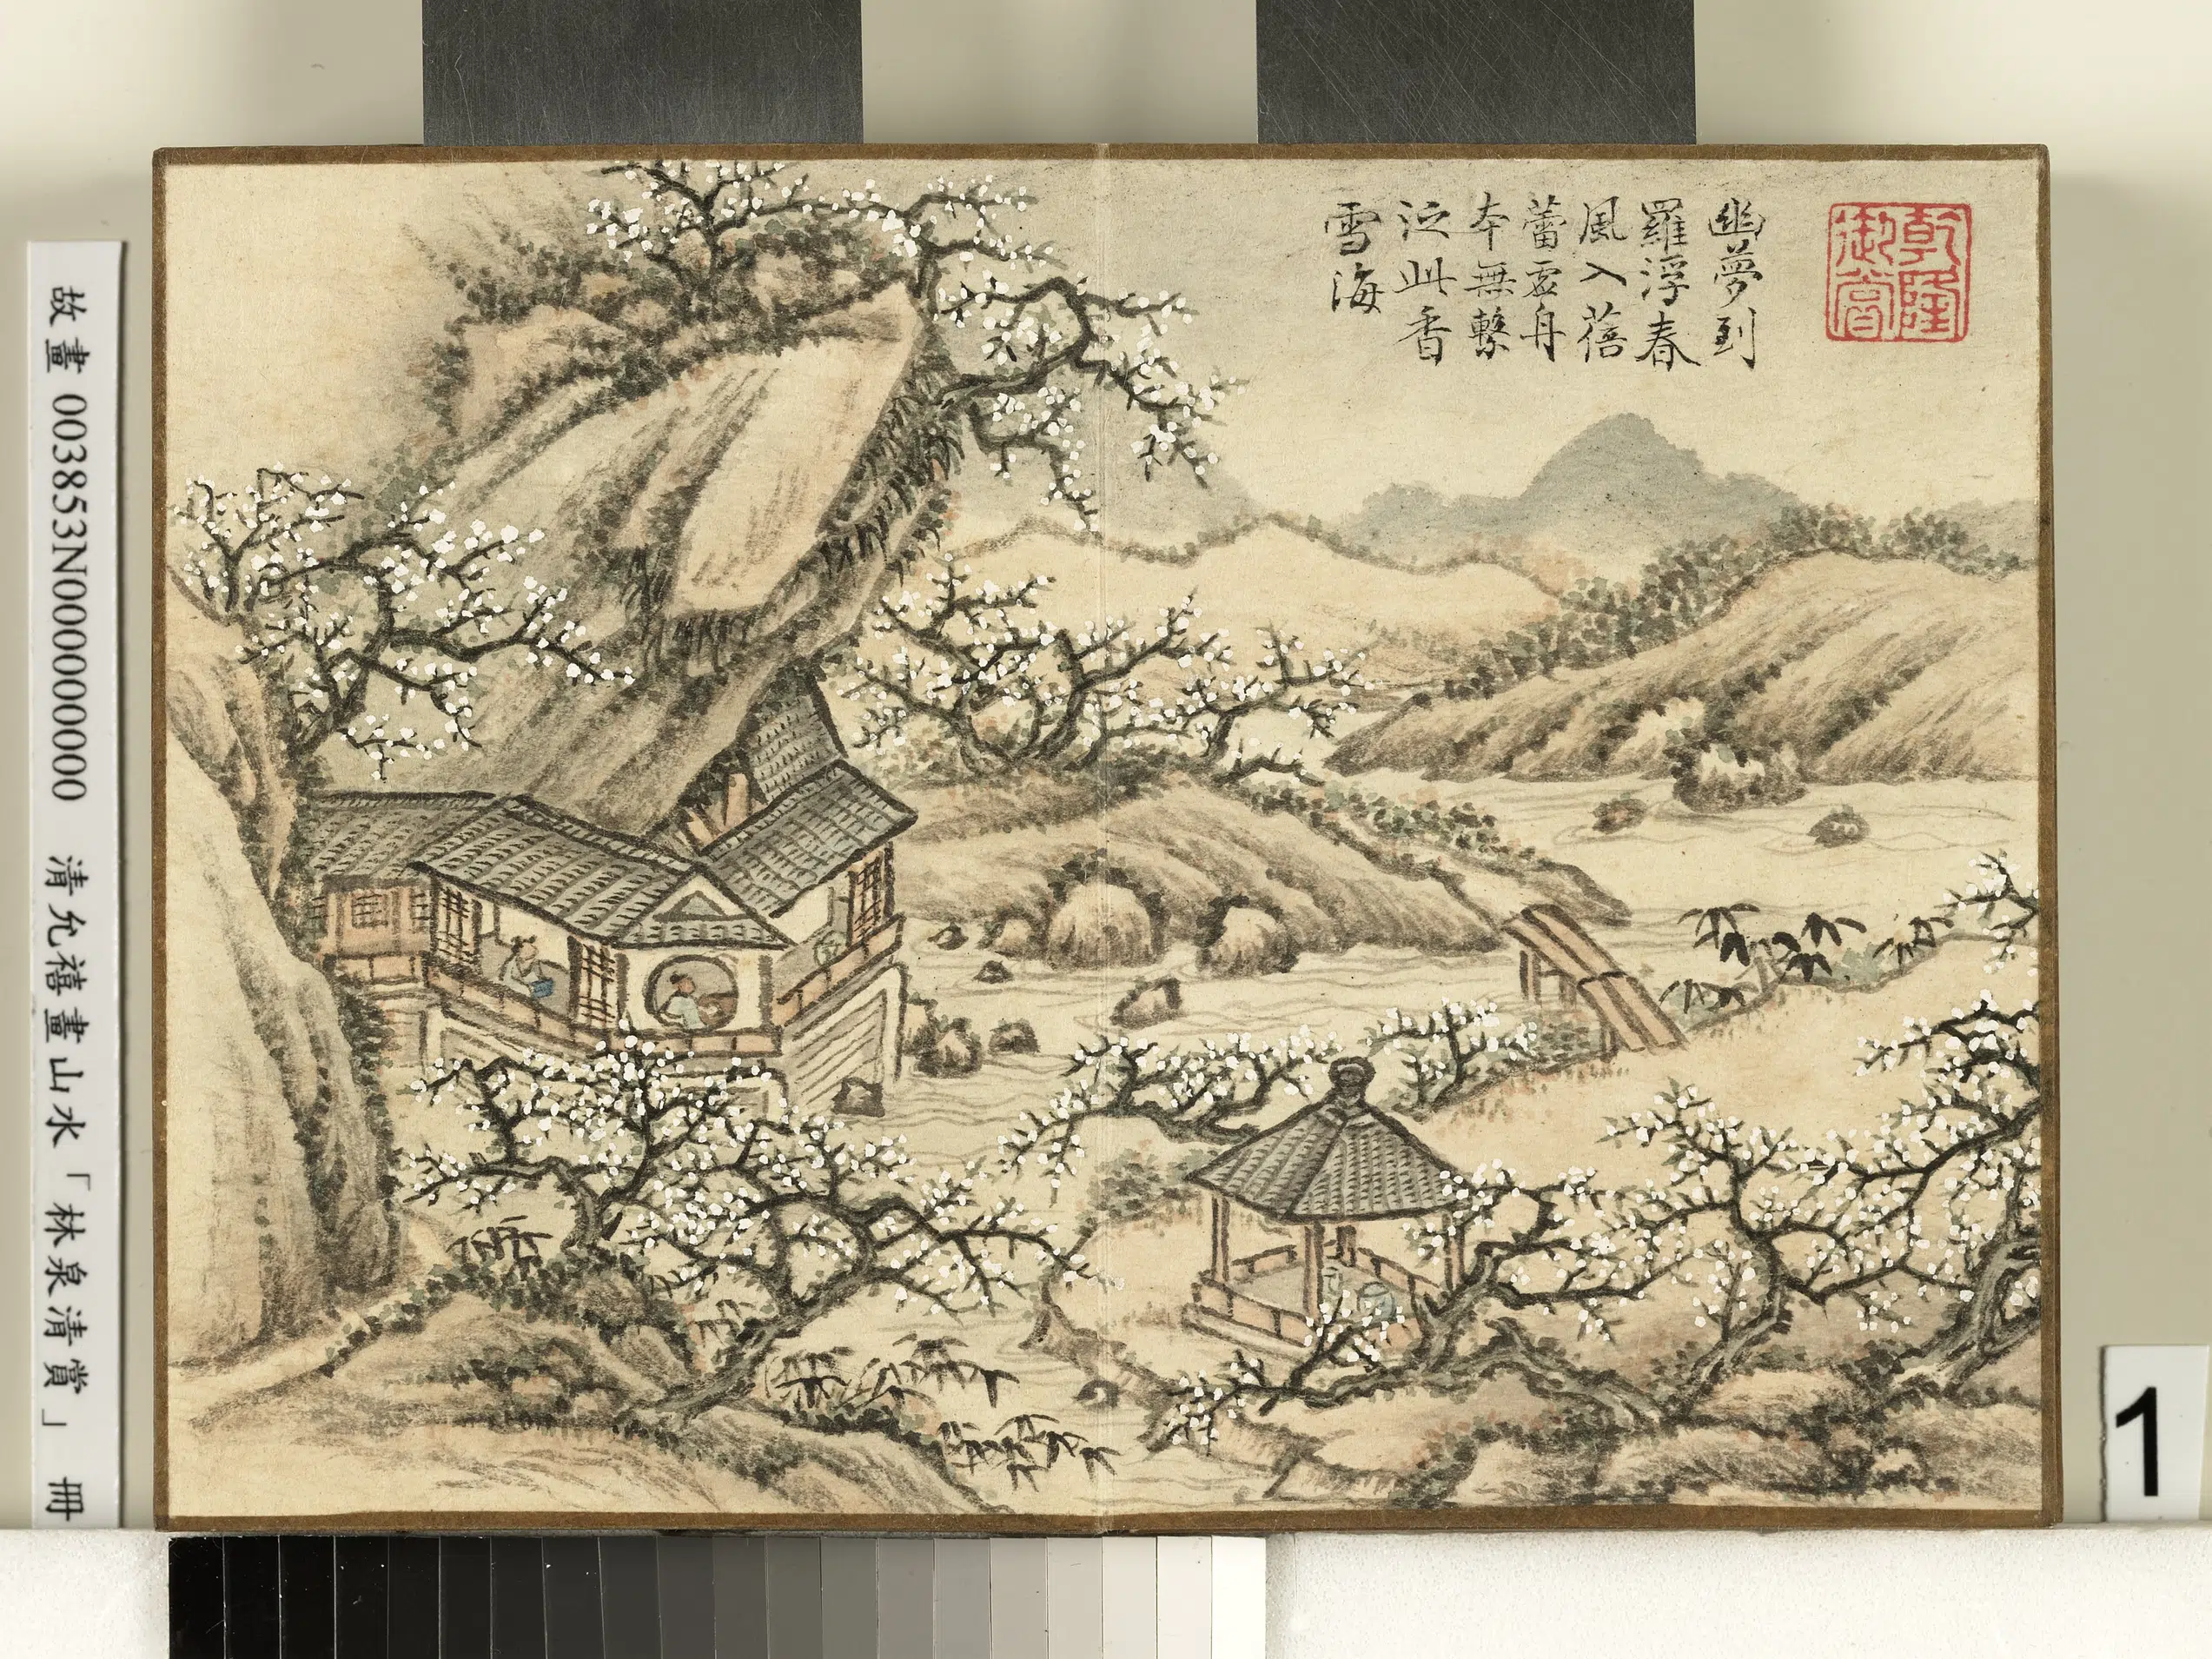 乾隆
御賞
幽夢到
羅浮春
風入蓓
蕾虛舟
本無繫
泛此香
雪海
故畫 003853N000000000 清允禧畫山水「林泉清賞」 冊
1